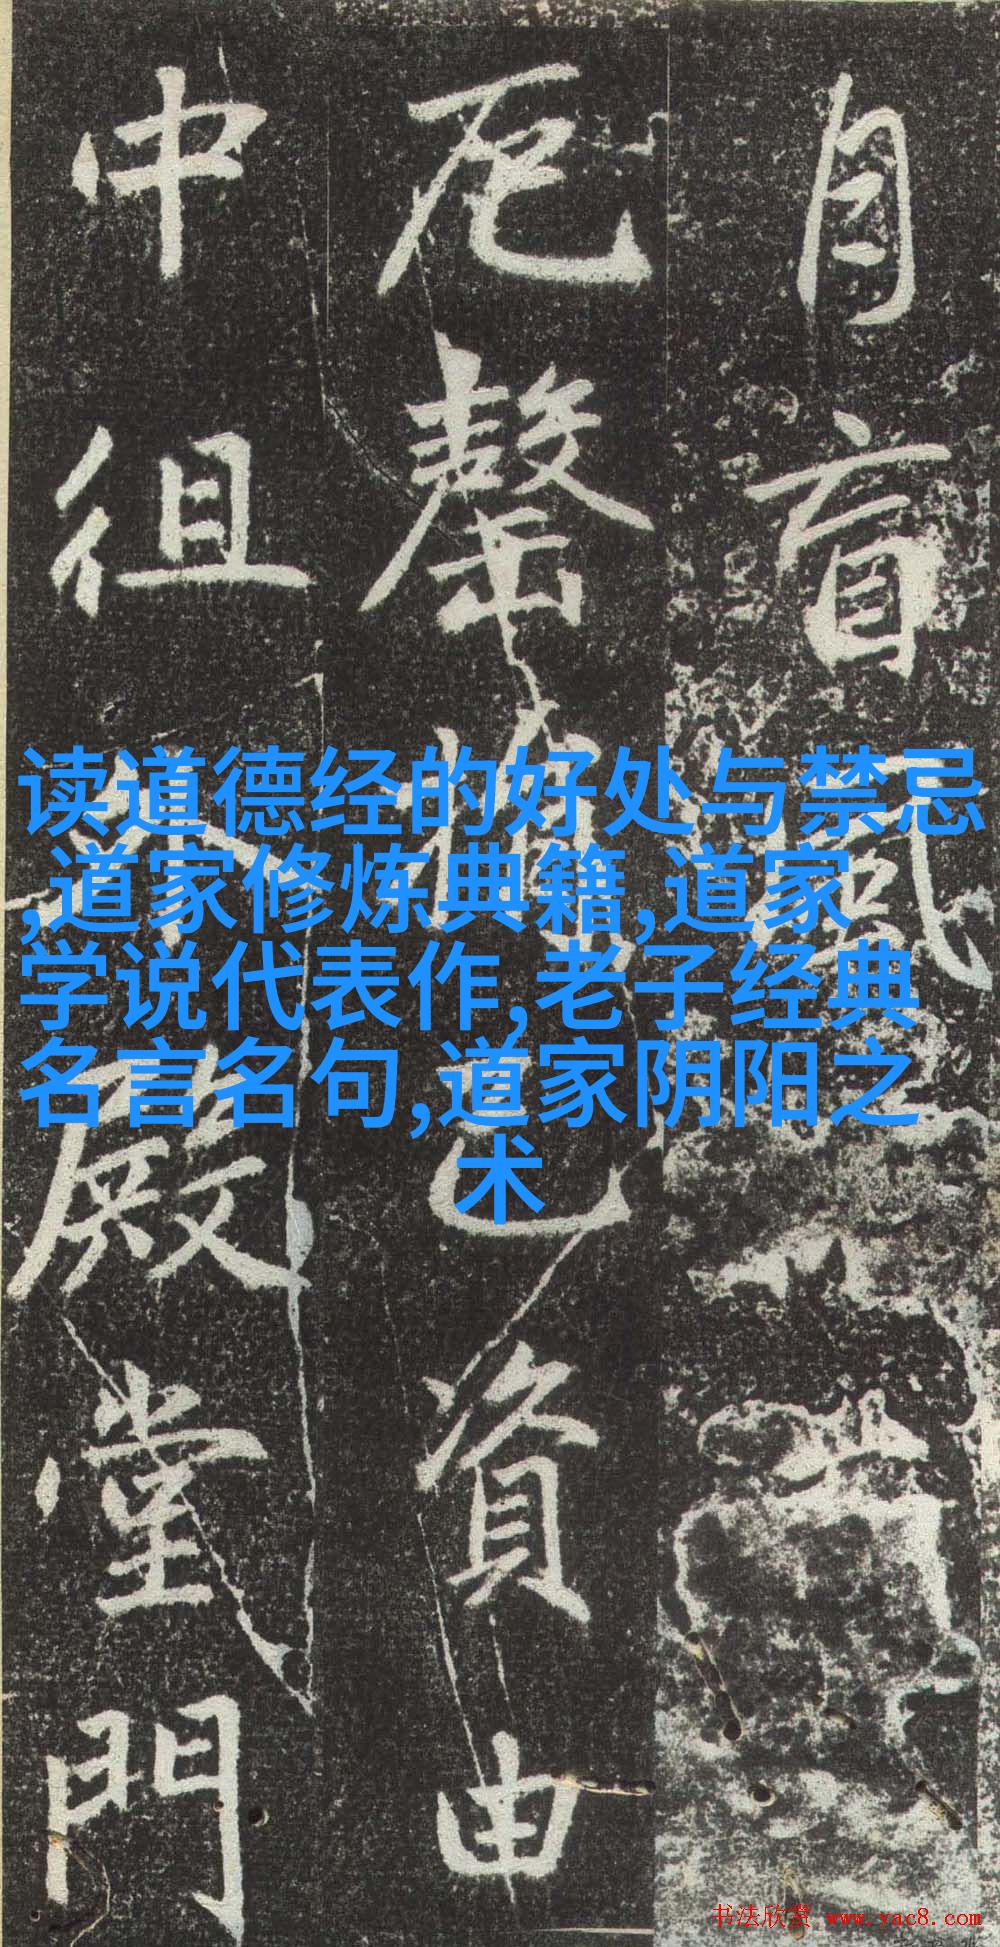 读道德经的好处与禁忌
,道家修炼典籍,道家
学说代表作,老子经典
名言名句,道家阴阳之
术
自盲風
厄罄已資由
中徂殿堂門
书法欣赏 www.yac8.com